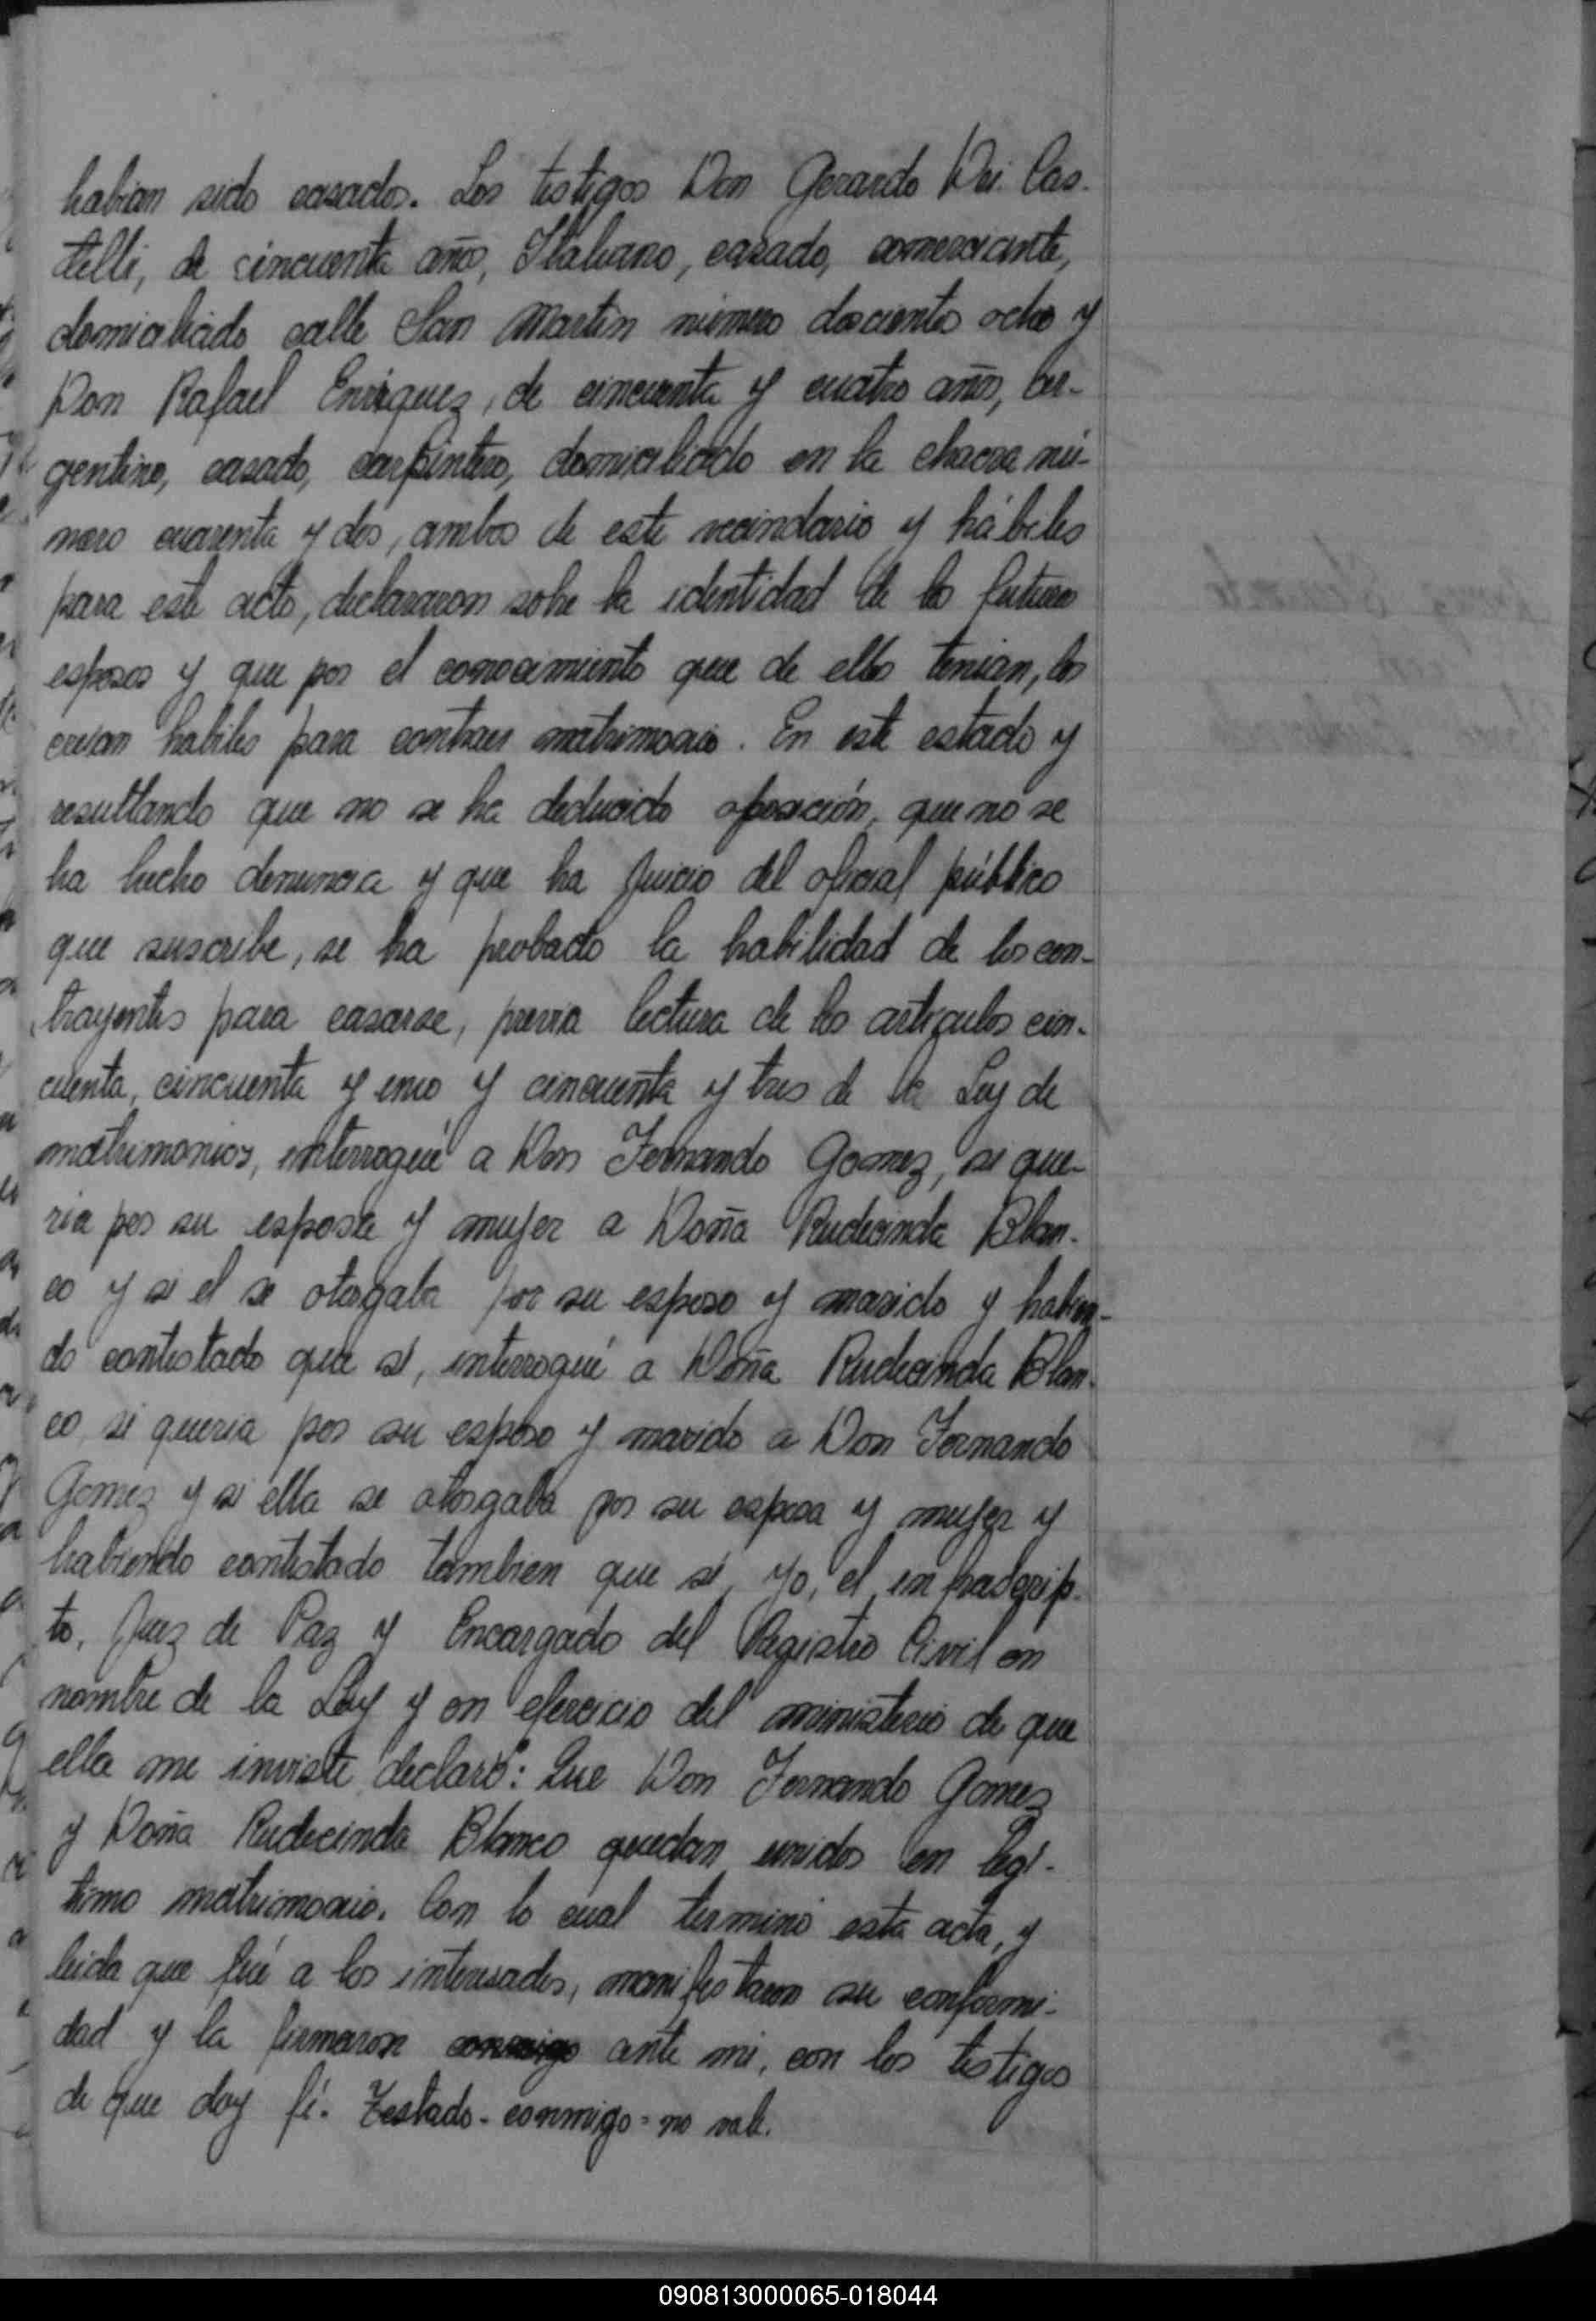 habian sido casados. Los testigos Don Gerardo Di Cas-
telli, de cincuenta años, Italiano, casado, comerciante,
domiciliado calle San Martin número doscientos ocho y
Don Rafael Enriquez, de cincuenta y cuatro años, ar-
gentino, casado, carpintero, domiciliado en la chacra nú-
mero cuarenta y dos, ambos de este vecindario y hábiles
para este acto, declararon sobre la identidad de los futuros
esposos y que por el conocimiento que de ellos tenian, los
creian habiles para contraer matrimonio. En este estado y
resultando que no se ha deducido oposición, que no se
ha hecho denuncia y que ha juicio del oficial público
que suscribe, se ha probado la habilidad de los con-
trayentes para casarse, previa lectura de los articulos cin-
cuenta, cincuenta y uno y cincuenta y tres de la Ley de
matrimonios, interrogué a Don Fernando Gomez, si que-
ria por su esposa y mujer a Doña Rudecinda Blan-
co y si el se otorgaba por su esposo y marido y habien-
do contestado que sí, interrogué a Doña Rudecinda Blan-
co, si queria por su esposo y marido a Don Fernando
Gomez y si ella se otorgaba por su esposa y mujer y
habiendo contestado tambien que sí, yo, el infrascrip-
to, Juez de Paz y Encargado del Registro Civil en
nombre de la Ley y en ejercicio del ministerio de que
ella me inviste declaro: Que Don Fernando Gomez
y Doña Rudecinda Blanco quedan unidos en legí-
timo matrimonio. Con lo cual terminó esta acta, y
leida que fué a los interesados, manifestaron su conformi-
dad y la firmaron conmigo ante mi, con los testigos
de que doy fé. Testado - conmigo = no vale.
090813000065-018044